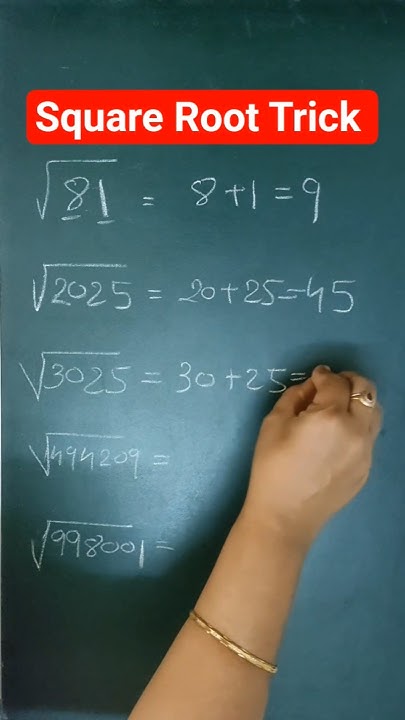 Square Root Trick
√81 = 8+1=9
√2025 = 20+25=45
√3025 = 30+25=
√494209 =
√998001 =